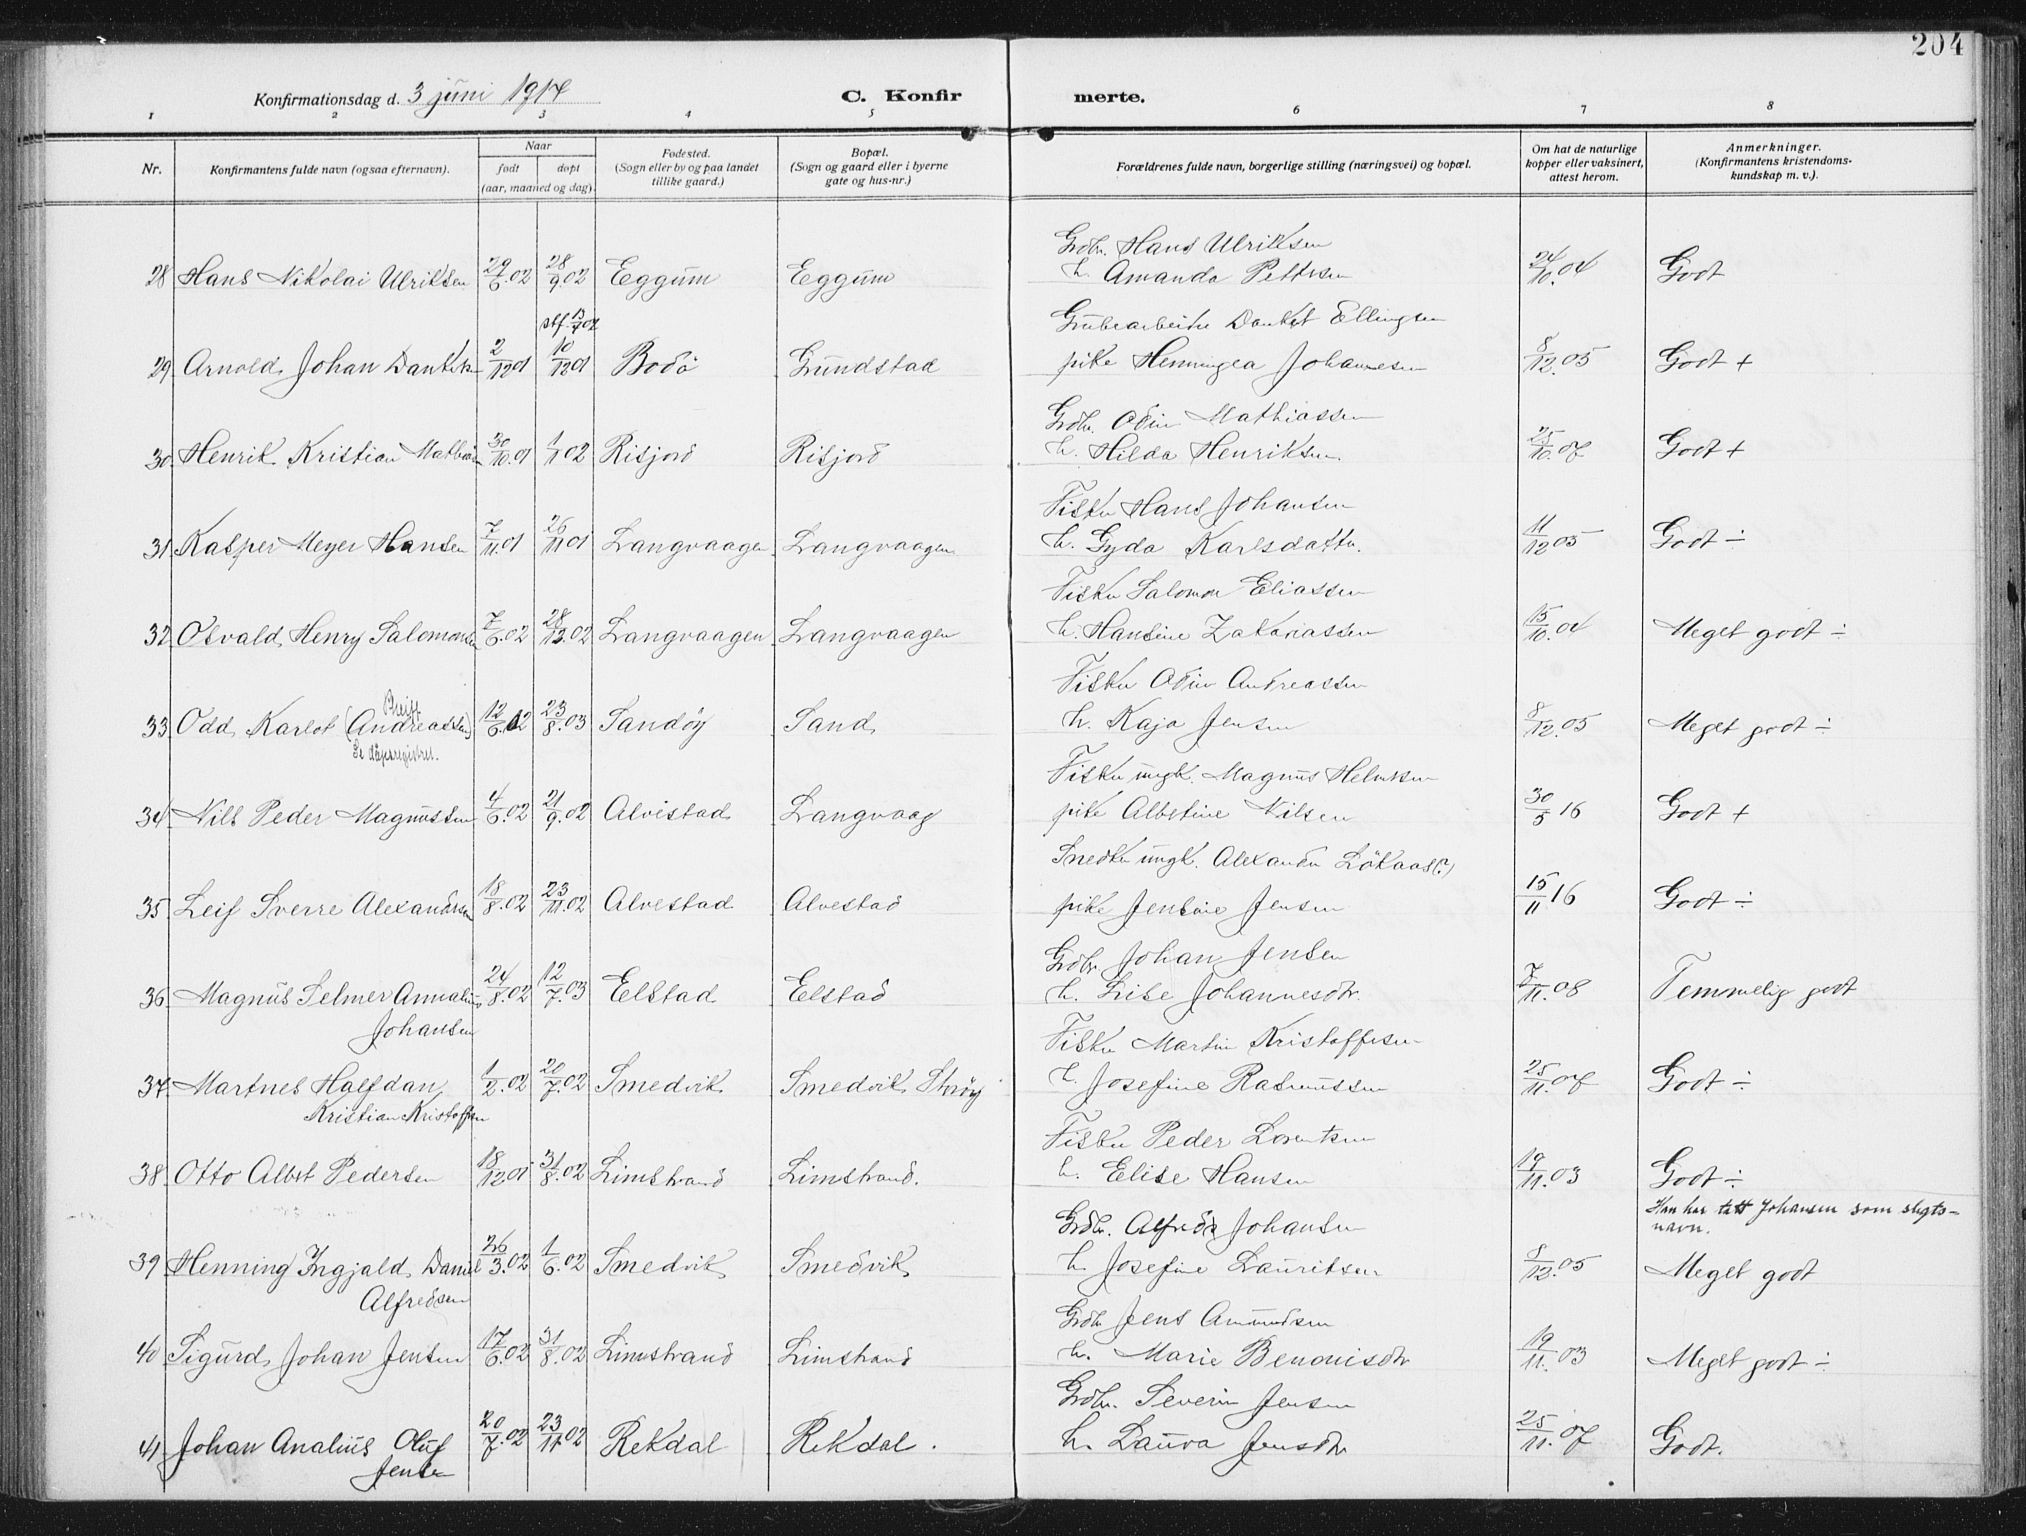 204
Konfirmationsdag d. 3 juni 1917
C. Konfir merte.
1 2 3 4 5 6 7 8
Nr.
Konfirmantens fulde navn (ogsaa efternavn).
Naar
født døpt
(aar, maaned og dag).
Fødested.
(Sogn eller by og paa landet
tillike gaard.)
Bopæl.
(Sogn og gaard eller i byerne
gate og hus-nr.)
Forældrenes fulde navn, borgerlige stilling (næringsvei) og bopæl.
Om hat de naturlige
kopper eller vaksinert,
attest herom.
Anmerkninger.
(Konfirmantens kristendoms-
kundskap m. v.).
Grdbr. Hans Ulriksen
28 Hans Nikolai Ulriksen 29/6.02 28/9.02 Eggum Eggum h. Amanda Pettersen 24/10.04 Godt
stf. 13/7 02 Grubearbeider Dankert Ellingsen
29 Arnold Johan Dankertsen 2/12 01 10/12 01 Bodö Grundstad pike Henningea Johannesen 8/12.05 Godt +
Grdbr. Odin Mathiassen
30. Henrik Kristian Mathiassen 30/10.01 1/1 02 Risjord Risjord h. Hilda Henriksen 25/10.07 Godt +
Fisker Hans Johansen
31. Kasper Meyer Hansen 7/11.01 26/11 01 Langvaagen Langvaagen h. Gyda Karlsdatter. 11/12 05 Godt ÷
Fisker Salomon Eliassen
32 Osvald Henry Salomonsen 7/6.02 28/12.02 Langvaagen Langvaagen h. Hansine Zakariassen 15/10.04 Meget godt ÷
Fisker Odin Andreassen
33 Odd Karlot (Andreassen) 12/6.02 23/8.03 Sandöy Sand h. Kaja Jensen 8/12.05 Meget godt ÷
Se dåpsregistret.
Fisker ungk. Magnus Helriksen
34 Nils Peder Magnussen 4/6.02 21/9.02 Alvestad Langvaag pike Albertine Nilsen 30/5 16 Godt +
Snedker ungk. Alexander Lökaas(?)
35 Leif Sverre Alexandersen 18/8.02 23/11.02 Alvestad Alvestad pike Jensine Jensen 15/11 16 Godt ÷
Grdbr. Johan Jensen
36 Magnus Selmer Annalius 24/8.02 12/7.03 Elstad Elstad h. Lise Johannesdtr. 7/11.08 Temmelig godt
Johansen
Fisker Martin Kristoffersen
37 Martnes Halfdan 1/2.02 20/7.02 Smedvik Smedvik, h. Josefine Rasmussen 25/11.07 Godt ÷
Kristian Kristoffersen
Fisker Peder Lorentsen
38 Otto Albert Pedersen 18/12.01 31/8.02 Limstrand Limstrand. h. Elise Hansen 19/11.03 Godt ÷
Grdbr. Alfred Johansen Han har tatt Johansen som slegts-
navn.
39 Henning Ingjald Daniel 26/3.02 1/6.02 Smedvik Smedvik h. Josefine Lauritsen 8/12.05 Meget godt
Alfredsen
Grdbr Jens Amundsen
40 Sigurd Johan Jensen 17/6.02 31/8.02 Limstrand Limstrand h. Marie Benonisdtr 19/11.03 Meget godt ÷
Grdbr. Severin Jensen
41 Johan Analius Oluf 20/7.02 23/11.02 Rekdal Rekdal. h. Laura Jensdtr 25/11.07 Godt.
Jensen